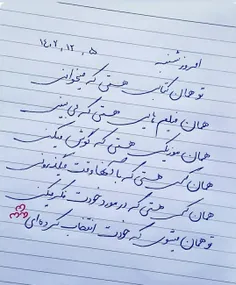 امروز شنبه ۵، ۱۲، ۱۴۰۲
تو همان کتابی هستی که میخوانی
همان فیلم هایی هستی که می بینی
همان موزیکی هستی که گوش میکنی
همان کسی هستی که با آنها وقت میگذرونی
همان کسی هستی که در مورد خودت فکر میکنی
تو همان میشوی که خودت انتخاب کرده‌ای